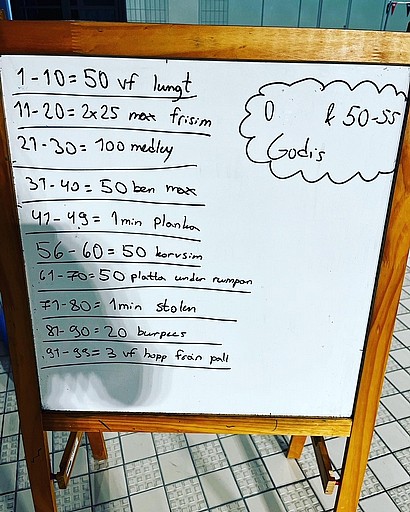 1-10 = 50 vf lungt
11-20 = 2x25 max frisim
21-30 = 100 medley
31-40 = 50 ben max
41-49 = 1 min planka
56-60 = 50 korvsim
61-70 = 50 platta under rumpan
71-80 = 1 min stolen
81-90 = 20 burpees
91-99 = 3 vf hopp från pall
0 & 50-55
Godis